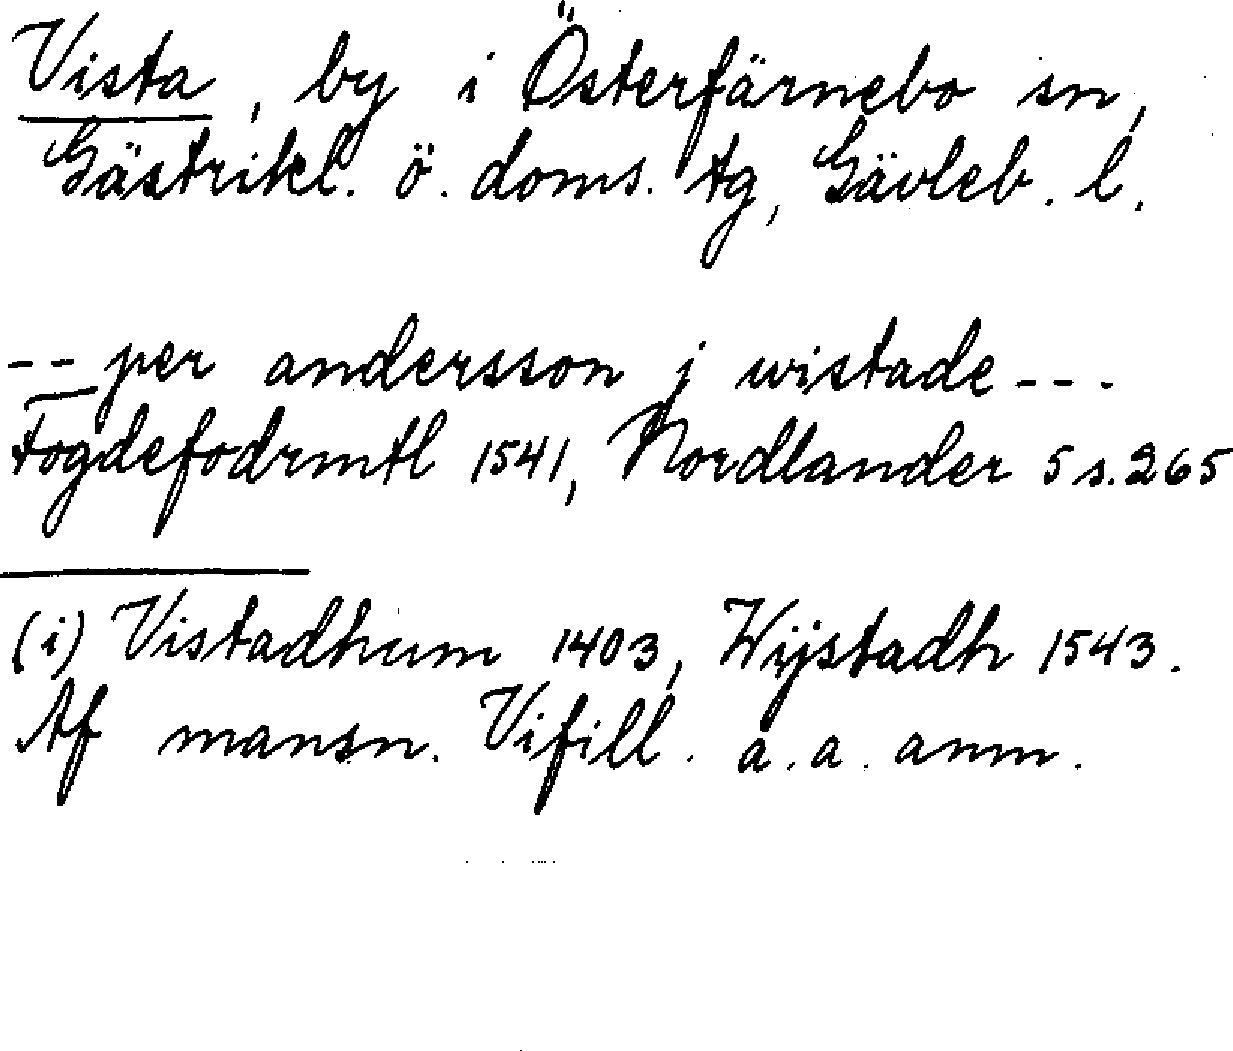 Vista, by i Österfärnebo sn,
Gästrikl. ö. doms. tg, Gävleb. l.
-- per andersson j wistade ---
Fogdefodrmtl 1541, Nordlander 5 s. 265
(i) Vistadhum 1403, Wijstadh 1543.
Af mansn. Vifill. a. a. anm.